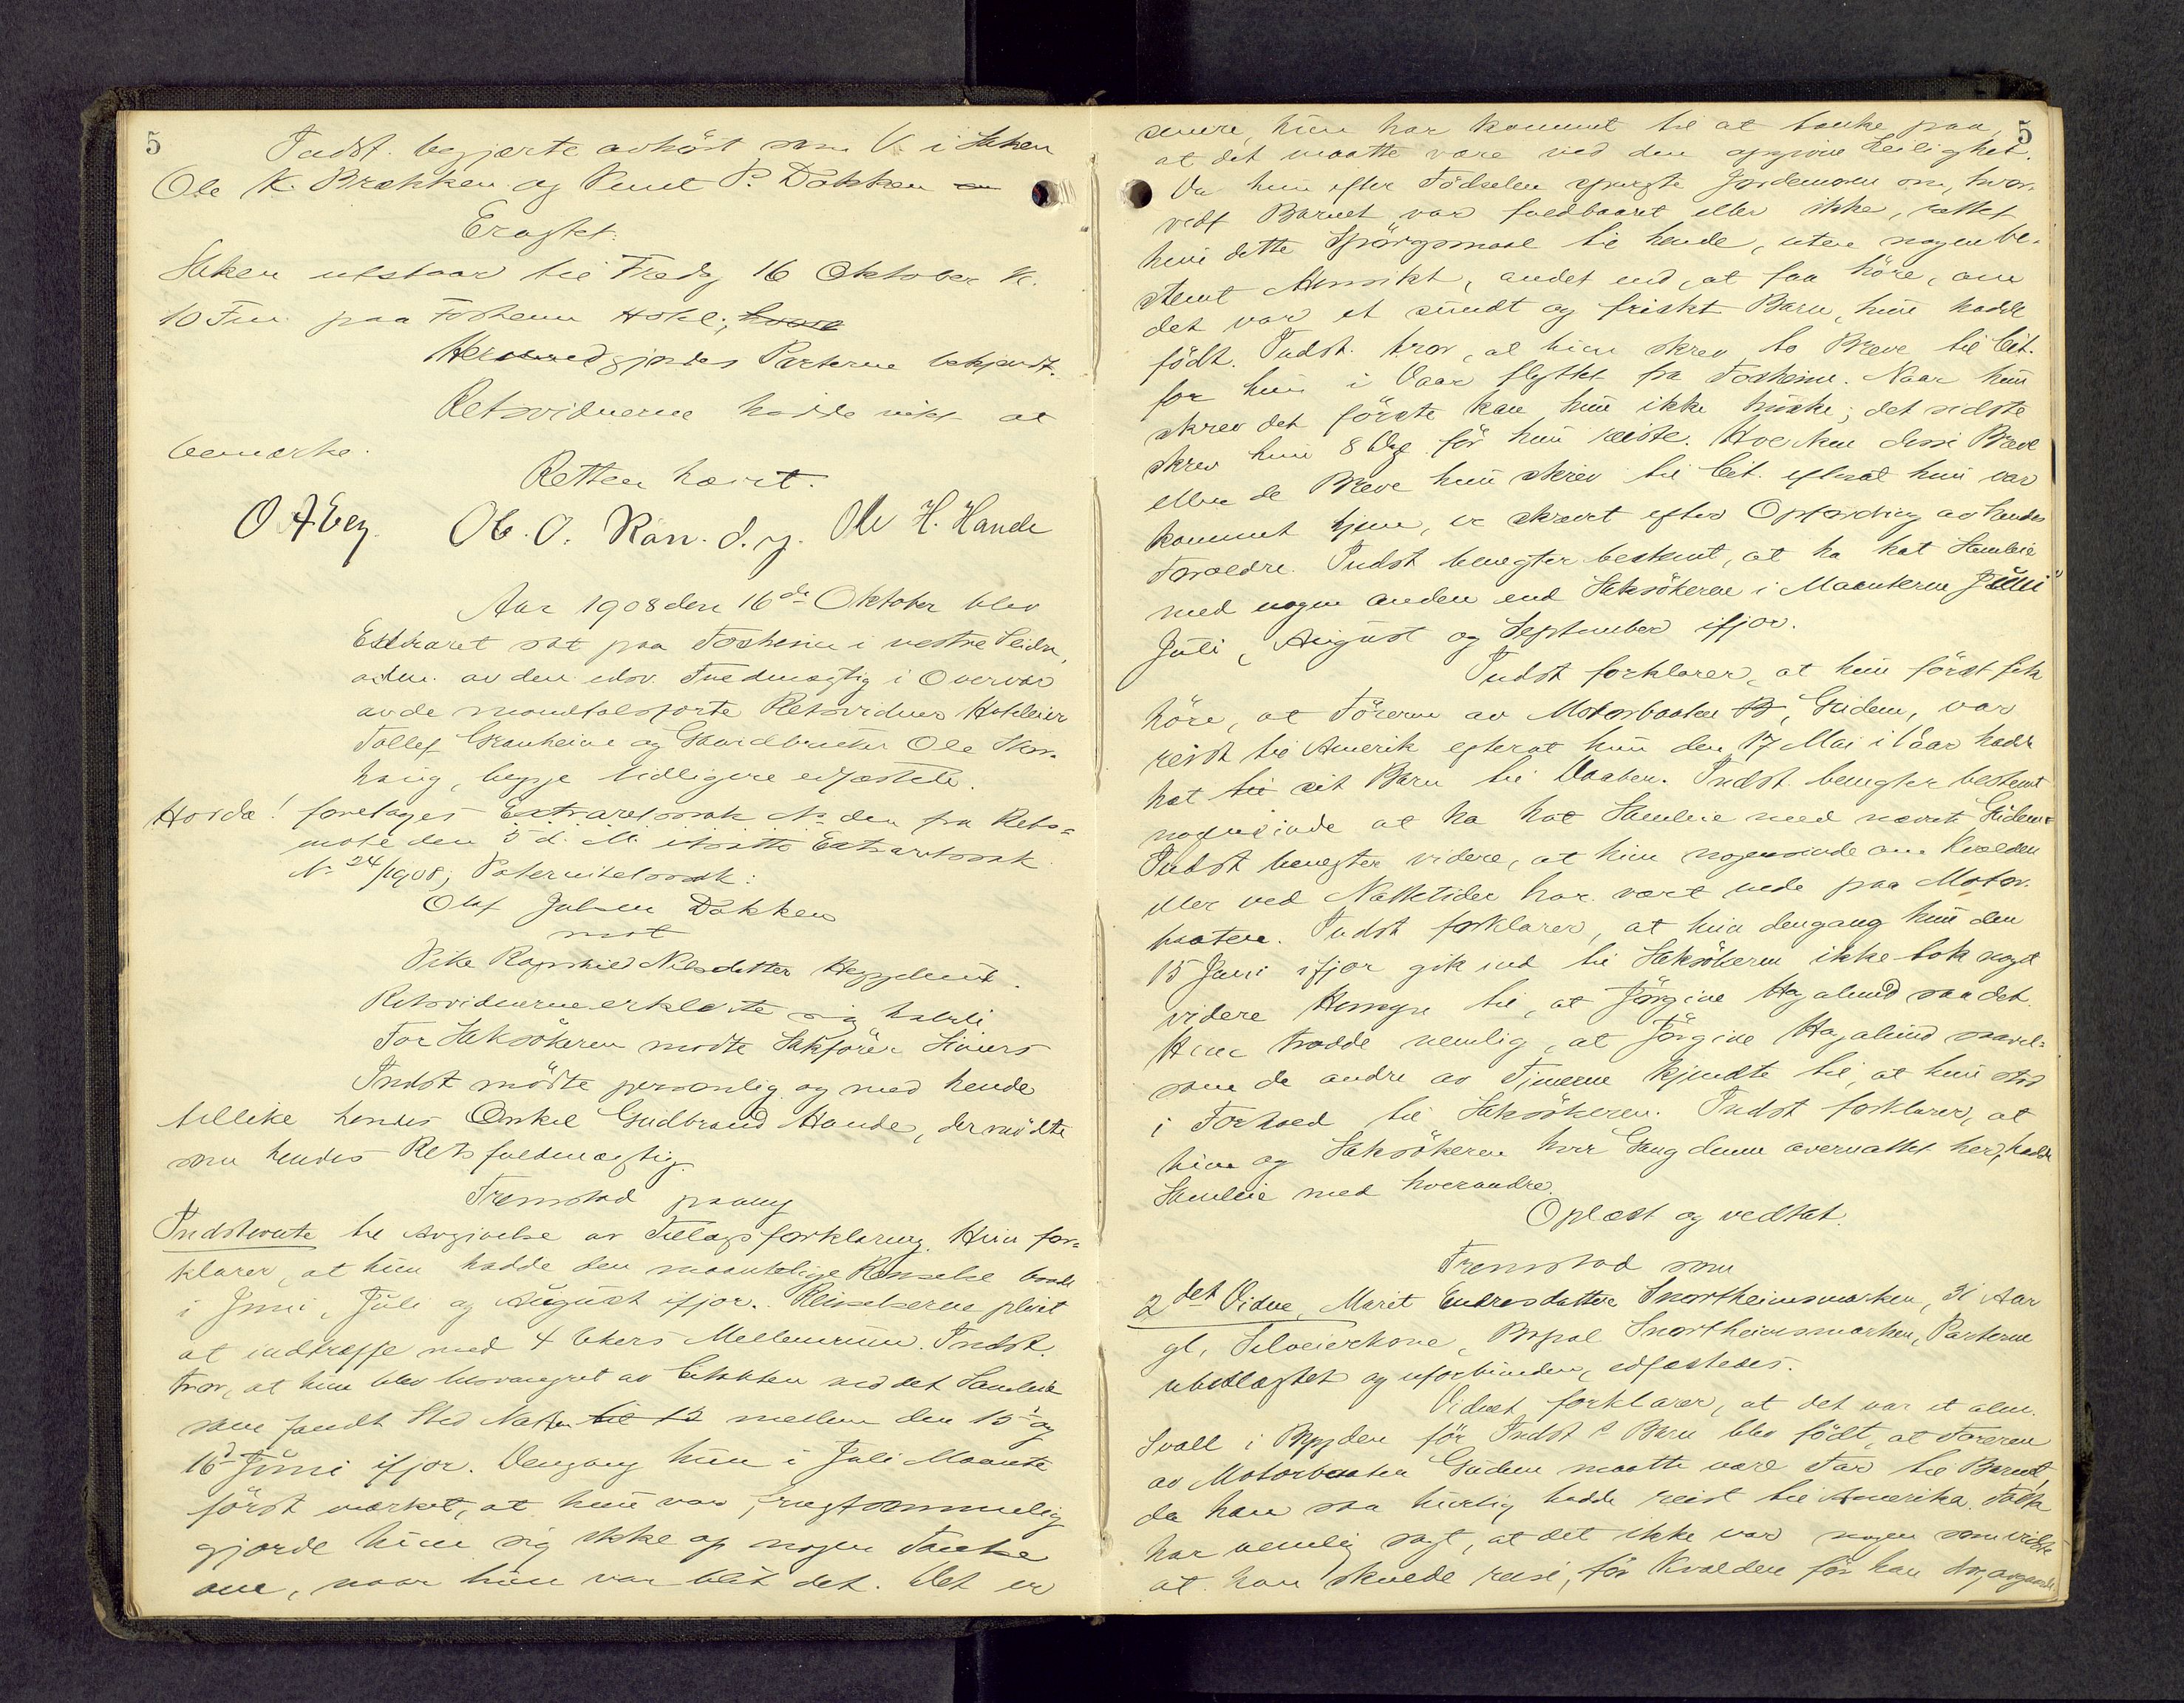 5
Indst. begjærte avhørt som V. i Saken
Ole K. Brækken og Knut P. Dokken
Eragtet:
Saken utstaar til Fredag 16 Oktober Kl.
10 Fm. paa Fosheim Hotel;
Herved gjordes Parterne bekjendt.
Retsvidnerne hadde intet at
bemærke.
Retten hævet.
O A Eeg. Ole. O. Røn. d.y. Ole H. Hande
Aar 1908 den 16de Oktober blev
Extraret sat paa Fosheim i vestre Slidre,
adm. av den edsv. Fuldmægtig i Overvær
av de Retsvidner Hoteleier
Tollef Granheim og Gaardbruker Ole Skor-
haug, begge tidligere edfæstede.
Hvorda! foretages Extraretssak No den fra Rets-
møte den 5 d. M. utsatte Extraretssak
No 24/1908; Paternitetssak:
Olaf Julsen Dokken
mot
Pike Ragnhild Nilsdatter Heggelund.
Retsvidnerne erklærte sig habile
For Saksøkeren mødte Sakfører Sivers
Indst. mødte personlig og med hende
tillike hendes Onkel Gudbrand Hande, der mødte
som hendes Retsfuldmægtig.
Fremstod paany
Indstevnte til Avgivelse av Tillægsforklaring. Hun for-
klarer, at hun hadde den maantelige Renselse baade
i Juni, Juli og August ifjor. Renselserne pleiet
at indtræffe med 4 Ukers Mellemrum. Indst.
tror, at hun blev besvangret av Citanten ved det Samleie
som fandt Sted Natten mellem den 15 og
16d Juni ifjor. Dengang hun i Juli Maaned
først mærket, at hun var frugtsommelig
gjorde hun sig ikke op nogen Tanke
om, naar hun var blit det. Det er
5
senere, hun har kommet til at tænke paa,
at det maatte være ved den opgivne Leilighet.
Da hun efter Fødselen spurgte Jordemoren om, hvor-
vidt Barnet var fuldbaaret eller ikke, rettet
hun dette Spørgsmaal til hende, uten nogen be-
stemt Hensikt, andet end at faa høre, om
det var et sundt og friskt Barn, hun hadde
født. Indst. tror, at hun skrev to Breve til Cit.
før hun i Vaar flyttet fra Fosheim. Naar hun
skrev det første kan hun ikke huske; det sidste
skrev hun 8 Dg. før hun reiste. Hverken disse Breve
eller de Breve hun skrev til Cit. efterat hun var
kommet hjem, er skrevet efter Opfordring av hendes
Forældre. Indst. benegter bestemt, at ha hat Samleie
med nogen anden end Saksøkeren i Maanterne Juni
Juli, August og September ifjor.
Indst. forklarer, at hun først fik
høre, at Føreren av Motorbaaten, Gudem, var
reist til Amerik efterat hun den 17 Mai i Vaar hadde
hat sit Barn til Daaben. Indst. benegter bestemt
nogensinde at ha hat Samleie med nævnte Gudem.
Indst. benegter videre, at hun nogensinde om Kvælden
eller ved Nattetider har vært nede paa Motor-
baaten. Indst. forklarer, at hun dengang hun den
15 Juni ifjor gik ind til Saksøkeren ikke tok noget
videre Hensyn til, at Jørgine Hagalund saa det.
Hun trodde nemlig, at Jørgine Hagalund saavel-
som de andre av Tjenerne kjendte til, at hun stod
i Forhold til Saksøkeren. Indst. forklarer, at
hun og Saksøkeren hver Gang denne overnattet her, hadde
Samleie med hverandre.
Oplæst og vedtat.
Fremstod som
2det Vidne, Marit Endresdatter Snortheimsmarken, 31 Aar
gl., Selveierkone, Bopæl Snortheimsmarken, Parterne
ubeslægtet og uforbunden, edfæstedes.
Vidnet forklarer, at det var et alm.
Svall i Bygden før Indst.s Barn blev født, at Føreren
av Motorbaaten Gudem maatte være Far til Barnet,
da han saa hurtig hadde reist til Amerika. Folk
har nemlig sagt, at det ikke var nogen som vidste
at han skulde reise, før Kvælden før han drog avgaarde.